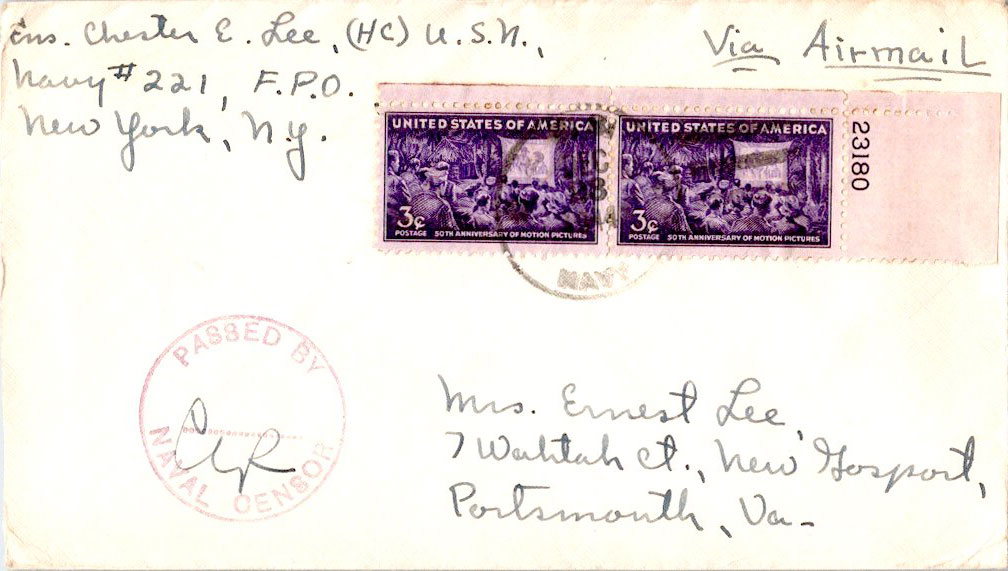 Ens. Chester E. Lee, (HC) U.S.N.,
Navy #221, F.P.O.
New York, N.Y.
Via Airmail
UNITED STATES OF AMERICA
3¢
POSTAGE 50TH ANNIVERSARY OF MOTION PICTURES
UNITED STATES OF AMERICA
3¢
POSTAGE 50TH ANNIVERSARY OF MOTION PICTURES
23180
NAVY
PASSED BY
NAVAL CENSOR
Mrs. Ernest Lee,
7 Wahtah Ct., New Gosport,
Portsmouth, Va-